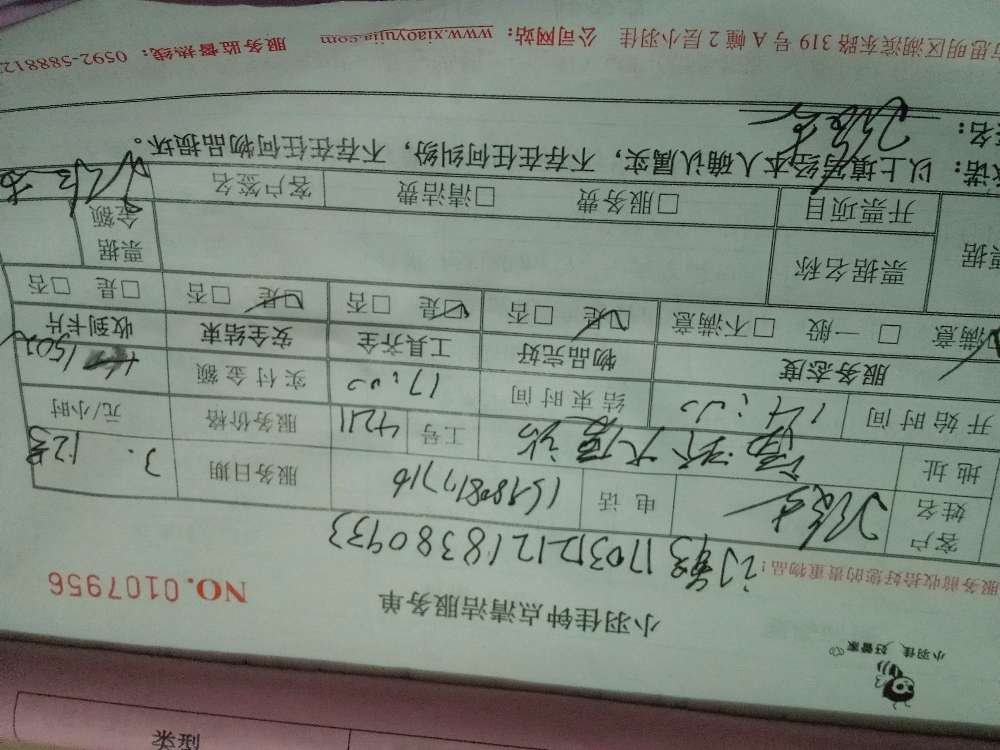 小羽佳、好管家
小羽佳钟点清洁服务单
NO. 0107956
服务前收拾好您的贵重物品:
170312121838093 3
客户姓名 电话 服务日期 3.12
地址 工号 4211 服务价格 元/小时
开始时间 14:00 结束时间 17:00 实付金额 150
服务态度 物品完好 工具齐全 安全结束 收到卡片
满意 □ 一般 □不满意 是 □否 是 □否 是 □否 □是 □否
票据 票据名称 票据金额
开票项目 □服务费 □清洁费 客户签名
承诺:以上填写经本人确认属实,不存在任何纠纷,不存在任何物品损坏。
签名:
思明区湖滨东路 319 号 A 幢 2 层小羽佳 公司网站:www.xiaoyujia.com 服务监督热线:0592-588812
类型